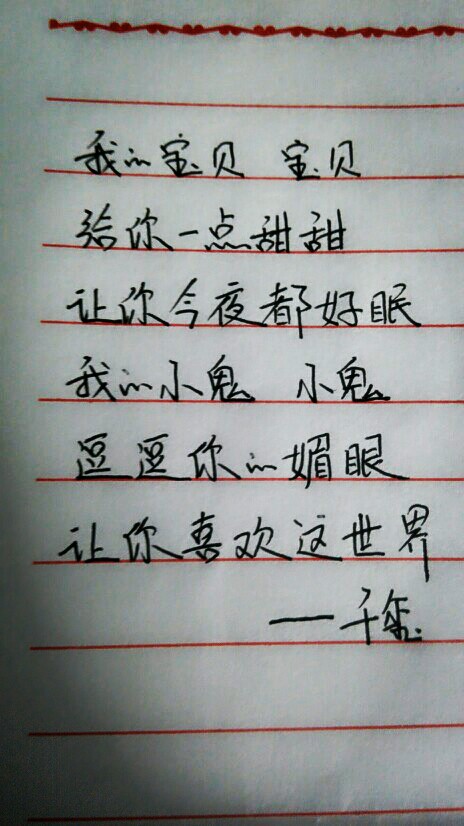 我的宝贝 宝贝
给你一点甜甜
让你今夜都好眠
我的小鬼 小鬼
逗逗你的媚眼
让你喜欢这世界
——千玺